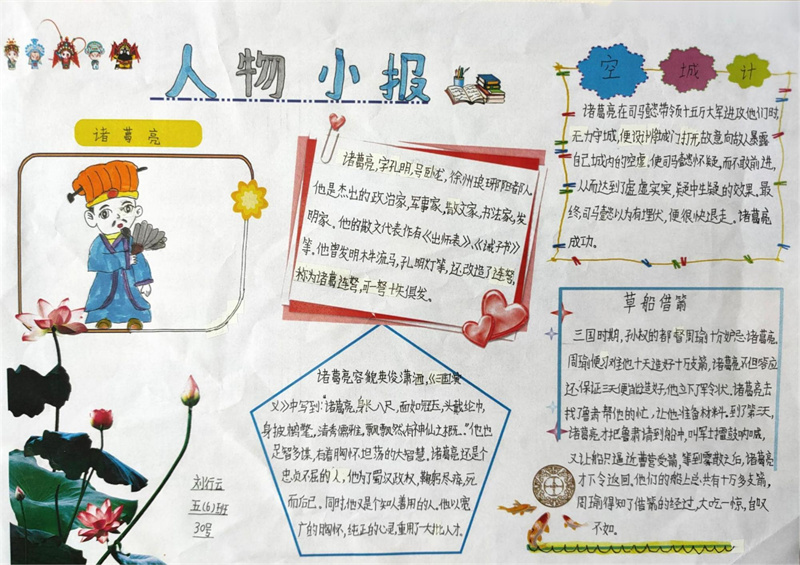 人物小报
诸葛亮
诸葛亮,字孔明,号卧龙,徐州琅琊阳都人
他是杰出的政治家,军事家,散文家,书法家,发
明家。他的散文代表作有《出师表》、《诫子书》
等。他曾发明木牛流马,孔明灯等,还改造了连弩,
称为诸葛连弩,可一弩十矢俱发。
空城计
诸葛亮在司马懿带领十五万大军进攻他们时,
无力守城,便设计将城门打开,故意向敌人暴露
自己城内的空虚,使司马懿怀疑,而不敢前进,
从而达到了虚虚实实,疑中生疑的效果。最
终,司马懿以为有埋伏,便很快退走。诸葛亮
成功。
草船借箭
三国时期,孙权的都督周瑜十分妒忌诸葛亮。
周瑜便刁难他十天造好十万支箭,诸葛亮不但答应
还保证三天便能造好,他立下了军令状。诸葛亮去
找了鲁肃帮他的忙,让他准备材料。到了第三天,
诸葛亮才把鲁肃请到船中,叫军士擂鼓呐喊,
又让船只逼近曹营受箭,等到雾散之后,诸葛亮
才下令返回,他们的船上总共有十万多支箭,
周瑜得知了借箭的经过,大吃一惊,自叹
不如。
诸葛亮容貌英俊潇洒,《三国演
义》中写到:“诸葛亮,身长八尺,面如冠玉,头戴纶巾,
身披鹤氅,清秀儒雅,飘飘然有神仙之概…”他也
足智多谋,有着胸怀坦荡的大智慧。诸葛亮还是个
忠贞不屈的人,他为了蜀汉政权,鞠躬尽瘁,死
而后已。同时,他又是个知人善用的人,他以宽
广的胸怀,纯正的心灵,重用了一大批人才。
刘行云
五(6)班
30号